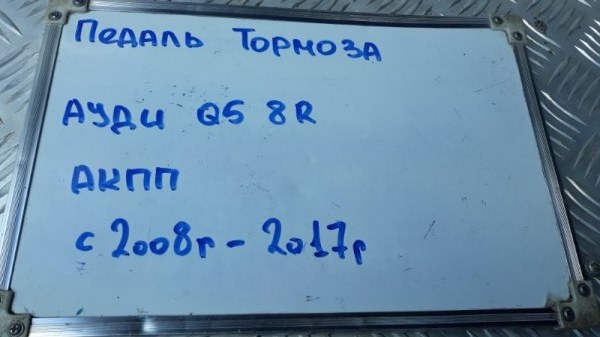 Педаль Тормоза
Ауди Q5 8R
АКПП
с 2008г - 2017г